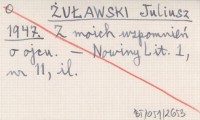 ŻUŁAWSKI Juliusz
1947. Z moich wspomnień
o ojcu. — Nowiny Lit. 1,
nr 11, il.